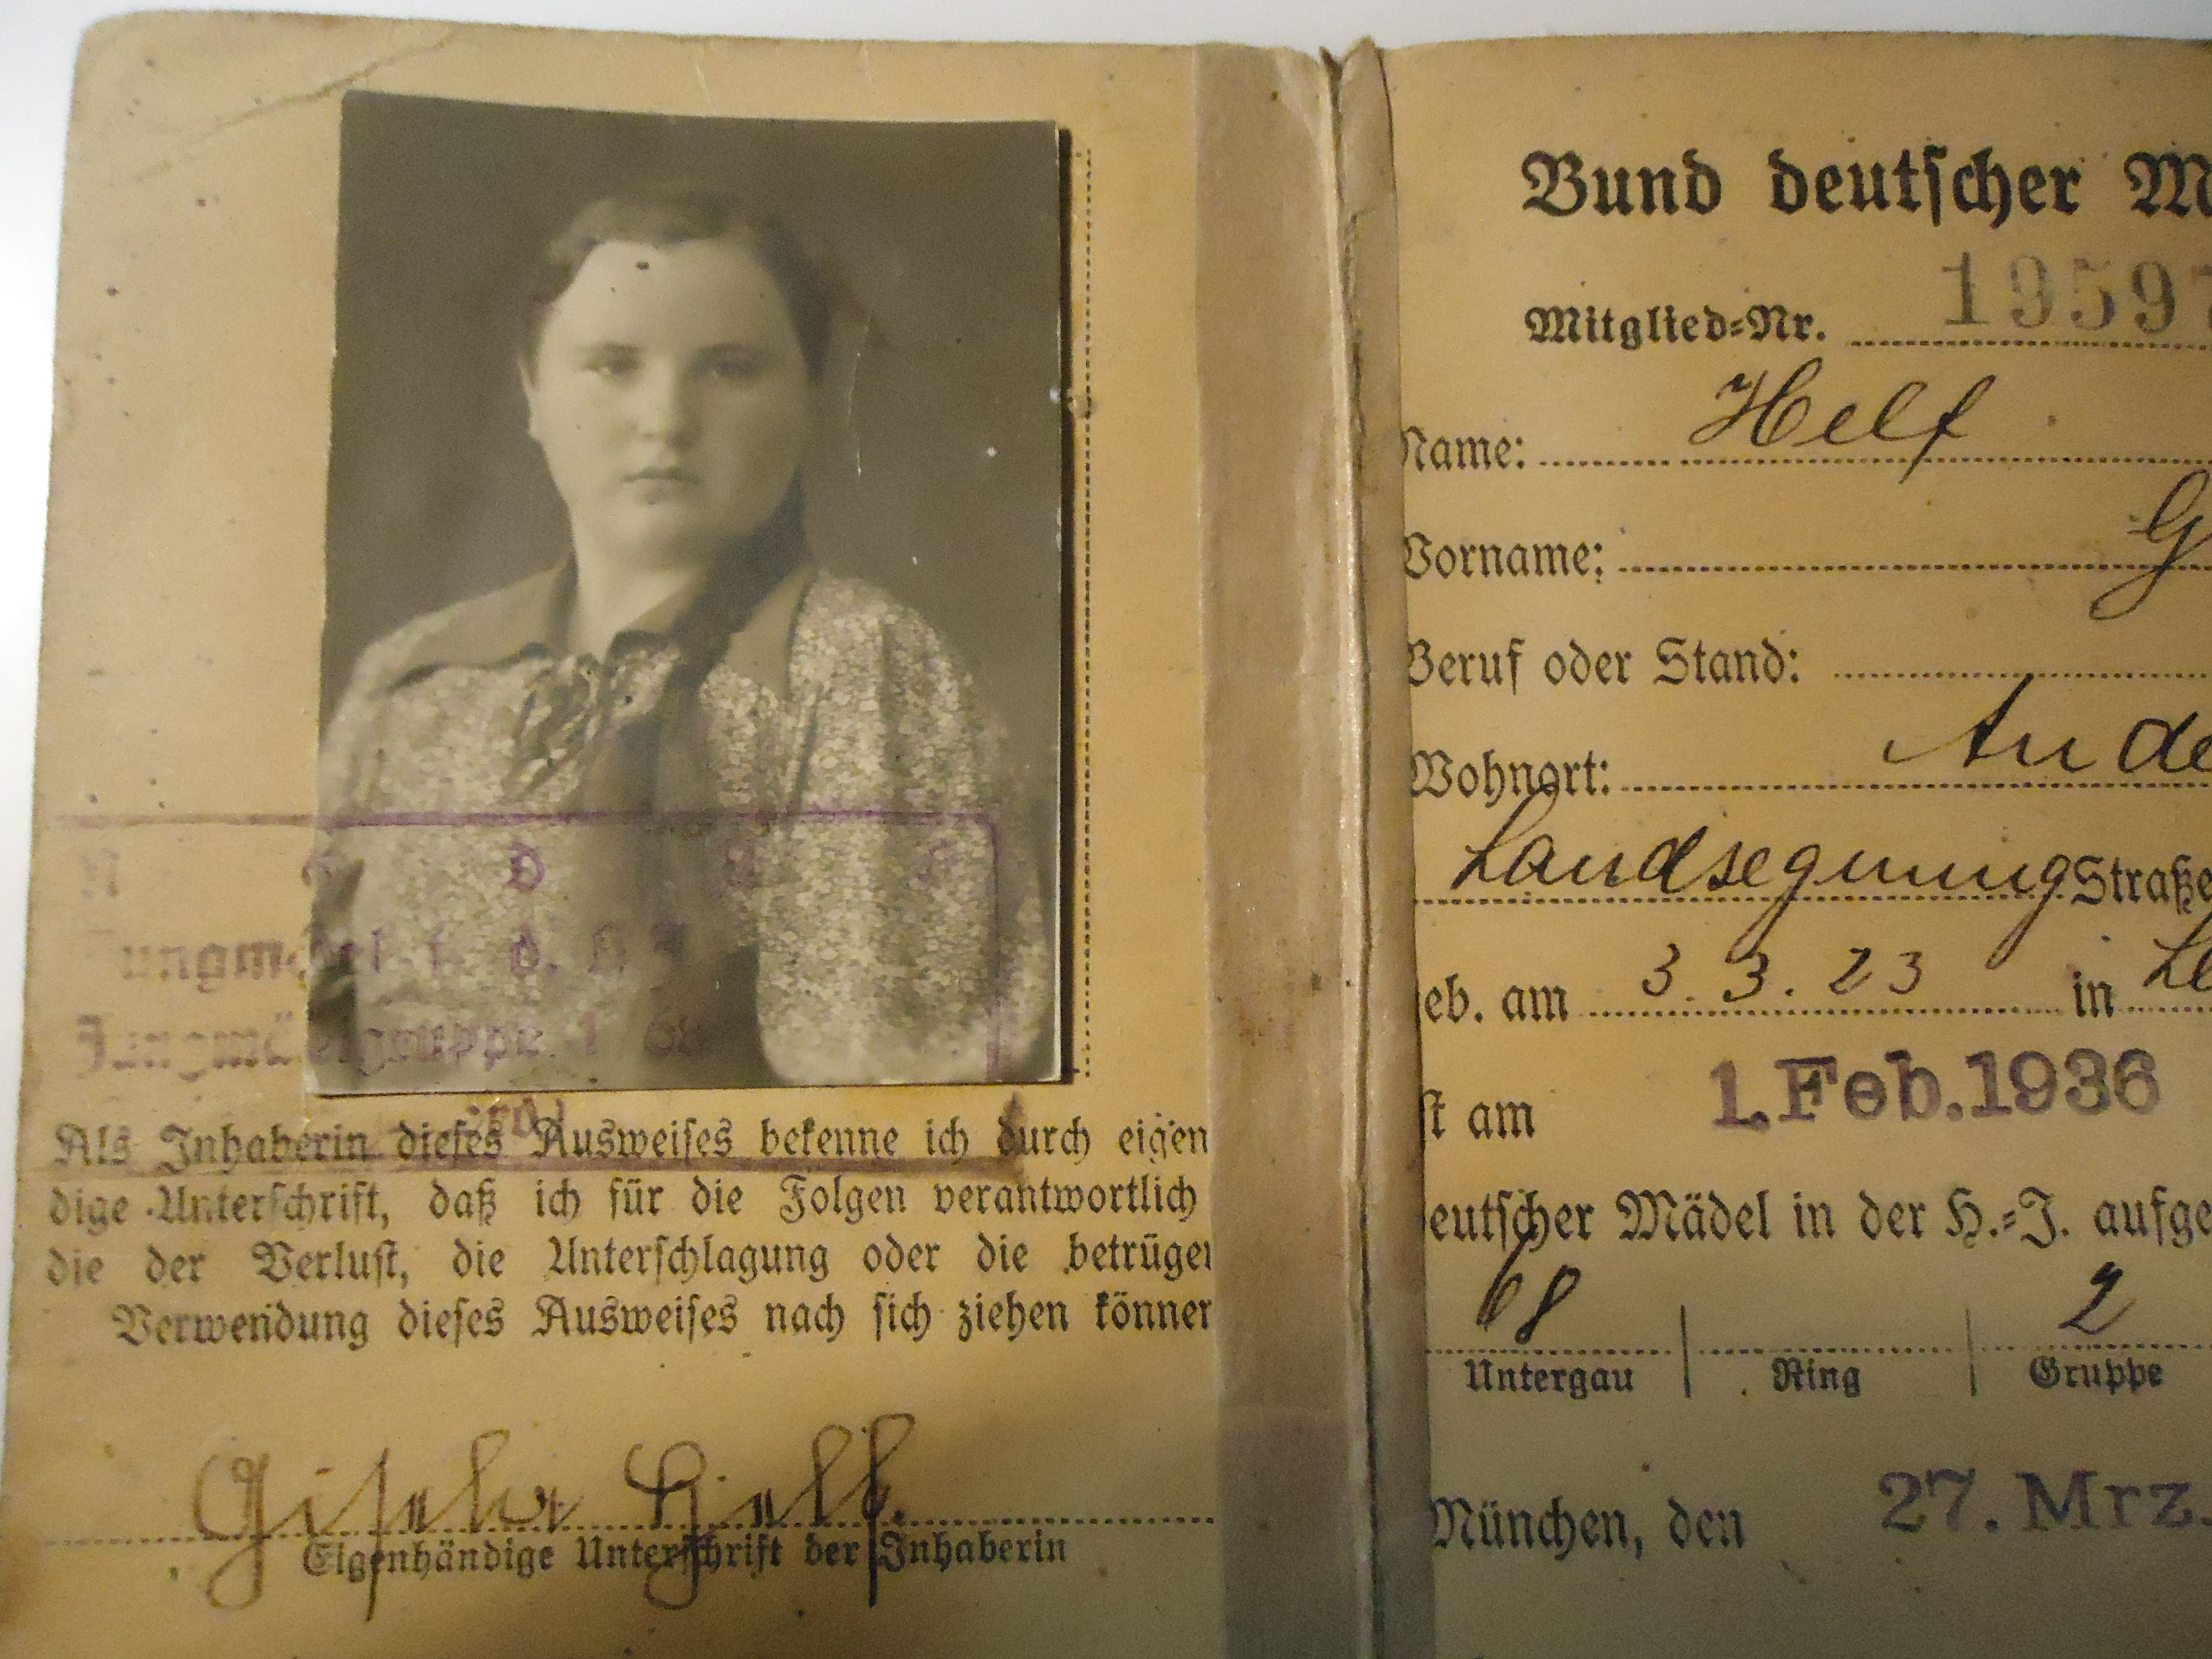 Jungmädelgruppe 1 68
Als Inhaberin dieses Ausweises bekenne ich durch eigen
dige Unterschrift, daß ich für die Folgen verantwortlich
die der Verlust, die Unterschlagung oder die betrüger
Verwendung dieses Ausweises nach sich ziehen können
Gisela Helf.
Eigenhändige Unterschrift der Inhaberin
Bund deutscher M
Mitglied-Nr. 19597
Name: Helf
Vorname: G
Beruf oder Stand:
Wohnort: Ande
Landsegnung Straße
eb. am 3. 3. 23 in Le
st am 1. Feb. 1936
eutscher Mädel in der H.-J. aufge
68 2
Untergau Ring Gruppe
München, den 27. Mrz.